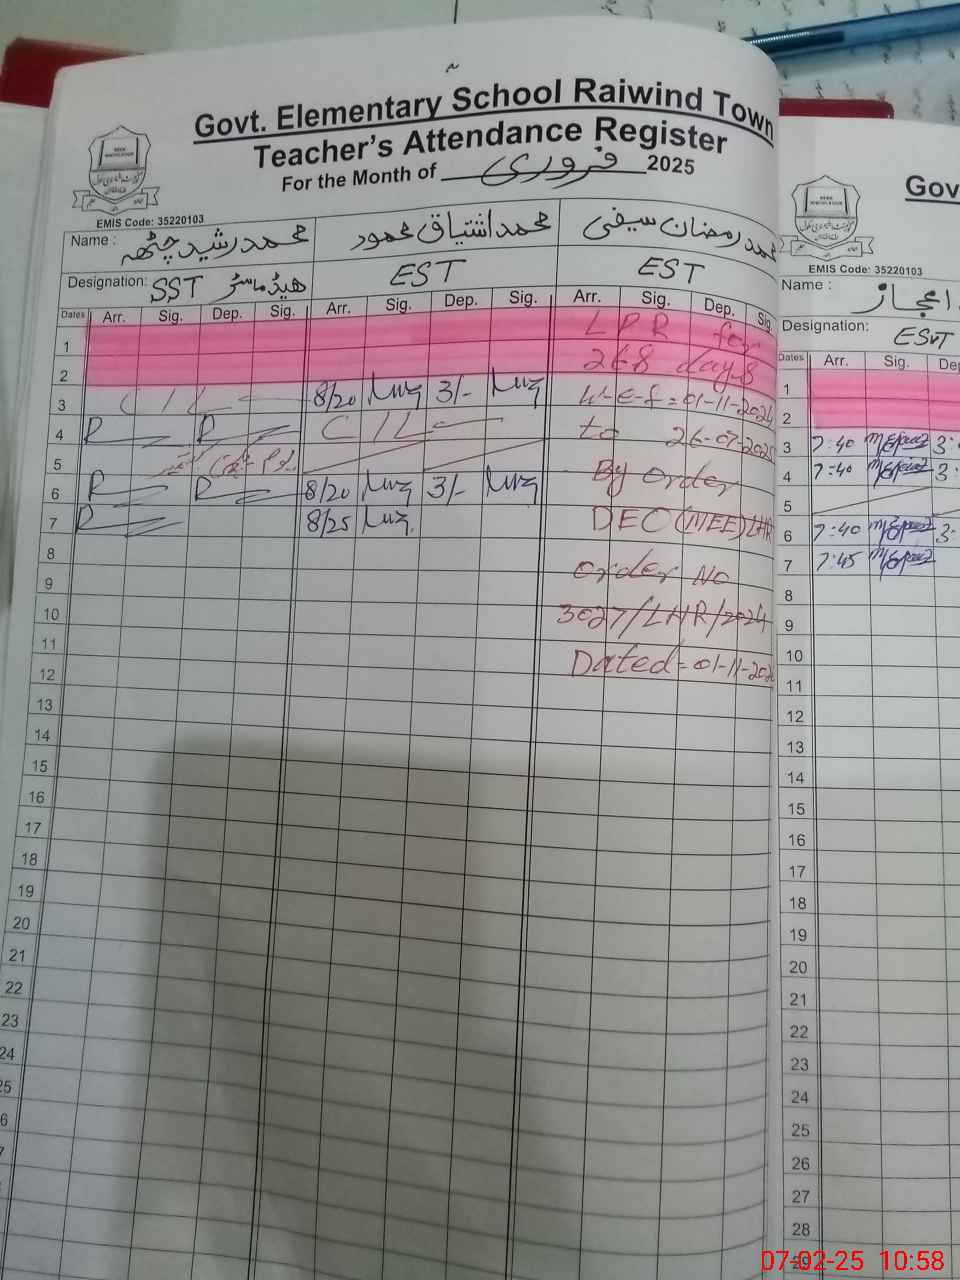 Govt. Elementary School Raiwind Town
Teacher's Attendance Register
For the Month of فروری 2025
EMIS Code: 35220103
Name : محمد رشید چٹھہ محمد اشتیاق محمود محمد رمضان سیفی
Designation: SST ہیڈ ماسٹر EST EST
Dates Arr. Sig. Dep. Sig. Arr. Sig. Dep. Sig. Arr. Sig. Dep. Sig.
1 LPR for
2 268 days
3 C/L 8/20 3/- W-e-f = 01-11-2024
4 R R C/L to 26-07-2025
5 By Order
6 R R 8/20 3/-
7 R 8/25 DEO (MEE) LHR
8 Order No
9
10 3027/LHR/2024
11 Dated = 01-11-202
12
13
14
15
16
17
18
19
20
21
22
23
24
25
6
Gov
EMIS Code: 35220103
Name : اعجاز
Designation: ESVT
Dates Arr. Sig. De
1
2
3 7:40 3:
4 7:40 3:
5
6 7:40 3:
7 7:45
8
9
10
11
12
13
14
15
16
17
18
19
20
21
22
23
24
25
26
27
28
29
07-02-25 10:58